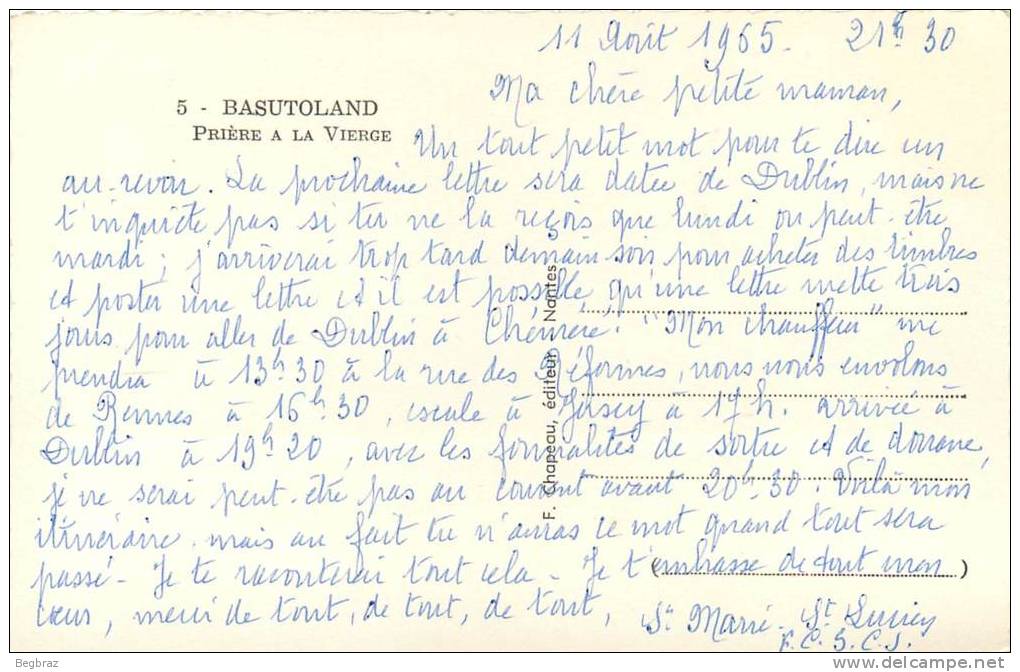 11 Août 1965. 21h 30
5 - BASUTOLAND
PRIÈRE A LA VIERGE
Ma chère petite maman,
Un tout petit mot pour te dire un
au-revoir. La prochaine lettre sera datée de Dublin, mais ne
t'inquiète pas si tu ne la reçois que lundi ou peut-être
mardi ; j'arriverai trop tard demain soir pour acheter des timbres
et poster une lettre et il est possible qu'une lettre mette trois
jours pour aller de Dublin à Chéméré. "Mon chauffeur" me
prendra à 13h30 à la rue des Réformes, nous nous envolons
de Rennes à 16h30, escale à Jersey à 17h. arrivée à
Dublin à 19h20, avec les formalités de sortie et de douane,
je ne serai peut-être pas au couvent avant 20h.30. Voilà mon
itinéraire - mais au fait tu n'auras ce mot quand tout sera
passé - Je te raconterai tout cela - Je t'embrasse de tout mon
cœur, merci de tout, de tout, de tout,
Sr Marie - St
F.C.S.C.J.
F. Chapeau, éditeur, Nantes
Begbraz
www.delcampe.net